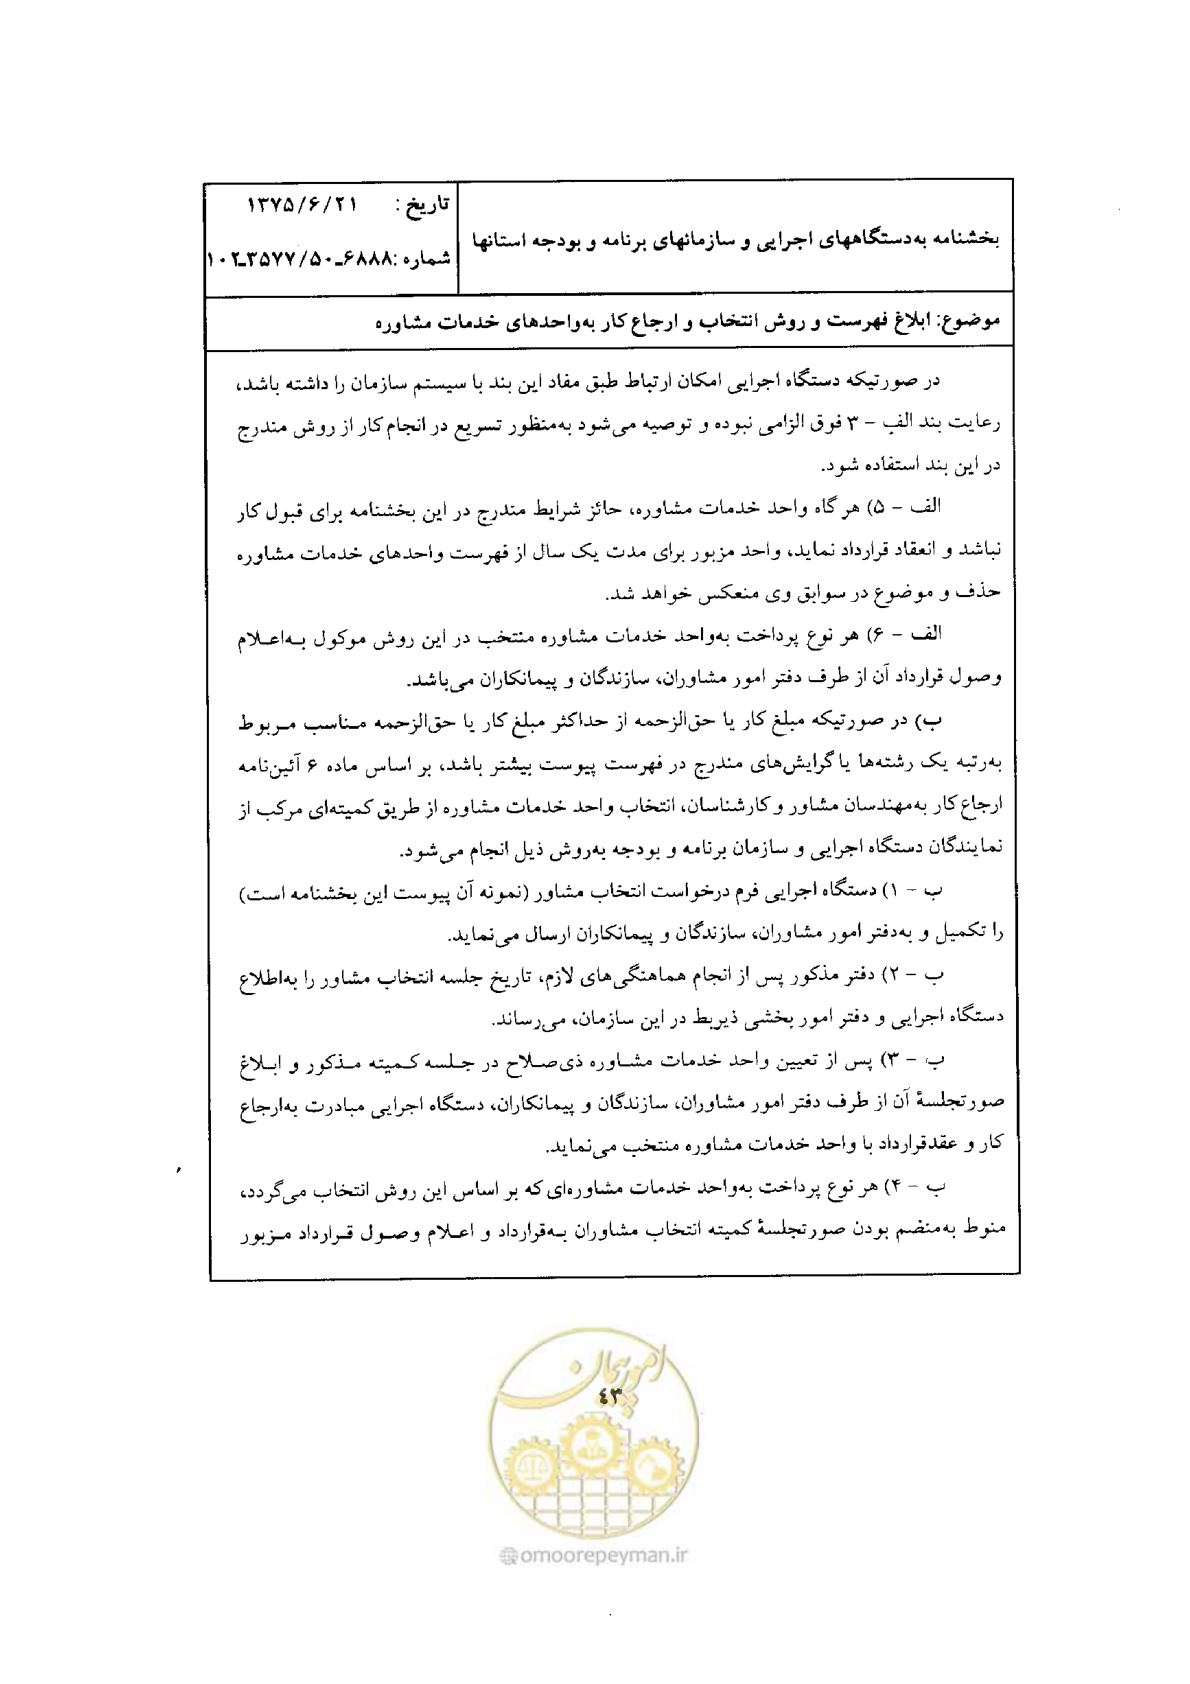 بخشنامه به‌دستگاههای اجرایی و سازمانهای برنامه و بودجه استانها
تاریخ : ۱۳۷۵/۶/۲۱
شماره :۶۸۸۸ـ۱۰۲ـ۳۵۷۷/۵۰
موضوع: ابلاغ فهرست و روش انتخاب و ارجاع کار به‌واحدهای خدمات مشاوره
در صورتیکه دستگاه اجرایی امکان ارتباط طبق مفاد این بند با سیستم سازمان را داشته باشد،
رعایت بند الف – ۳ فوق الزامی نبوده و توصیه می‌شود به‌منظور تسریع در انجام کار از روش مندرج
در این بند استفاده شود.
الف – ۵) هر گاه واحد خدمات مشاوره، حائز شرایط مندرج در این بخشنامه برای قبول کار
نباشد و انعقاد قرارداد نماید، واحد مزبور برای مدت یک سال از فهرست واحدهای خدمات مشاوره
حذف و موضوع در سوابق وی منعکس خواهد شد.
الف – ۶) هر نوع پرداخت به‌واحد خدمات مشاوره منتخب در این روش موکول به‌اعلام
وصول قرارداد آن از طرف دفتر امور مشاوران، سازندگان و پیمانکاران می‌باشد.
ب) در صورتیکه مبلغ کار یا حق‌الزحمه از حداکثر مبلغ کار یا حق‌الزحمه مناسب مربوط
به‌رتبه یک رشته‌ها یا گرایش‌های مندرج در فهرست پیوست بیشتر باشد، بر اساس ماده ۶ آئین‌نامه
ارجاع کار به‌مهندسان مشاور و کارشناسان، انتخاب واحد خدمات مشاوره از طریق کمیته‌ای مرکب از
نمایندگان دستگاه اجرایی و سازمان برنامه و بودجه به‌روش ذیل انجام می‌شود.
ب – ۱) دستگاه اجرایی فرم درخواست انتخاب مشاور (نمونه آن پیوست این بخشنامه است)
را تکمیل و به‌دفتر امور مشاوران، سازندگان و پیمانکاران ارسال می‌نماید.
ب – ۲) دفتر مذکور پس از انجام هماهنگی‌های لازم، تاریخ جلسه انتخاب مشاور را به‌اطلاع
دستگاه اجرایی و دفتر امور بخشی ذیربط در این سازمان، می‌رساند.
ب – ۳) پس از تعیین واحد خدمات مشاوره ذی‌صلاح در جلسه کمیته مذکور و ابلاغ
صورتجلسهٔ آن از طرف دفتر امور مشاوران، سازندگان و پیمانکاران، دستگاه اجرایی مبادرت به‌ارجاع
کار و عقدقرارداد با واحد خدمات مشاوره منتخب می‌نماید.
ب – ۴) هر نوع پرداخت به‌واحد خدمات مشاوره‌ای که بر اساس این روش انتخاب می‌گردد،
منوط به‌منضم بودن صورتجلسهٔ کمیته انتخاب مشاوران به‌قرارداد و اعلام وصول قرارداد مزبور
امور پیمان
٤٣
@omoorepeyman.ir